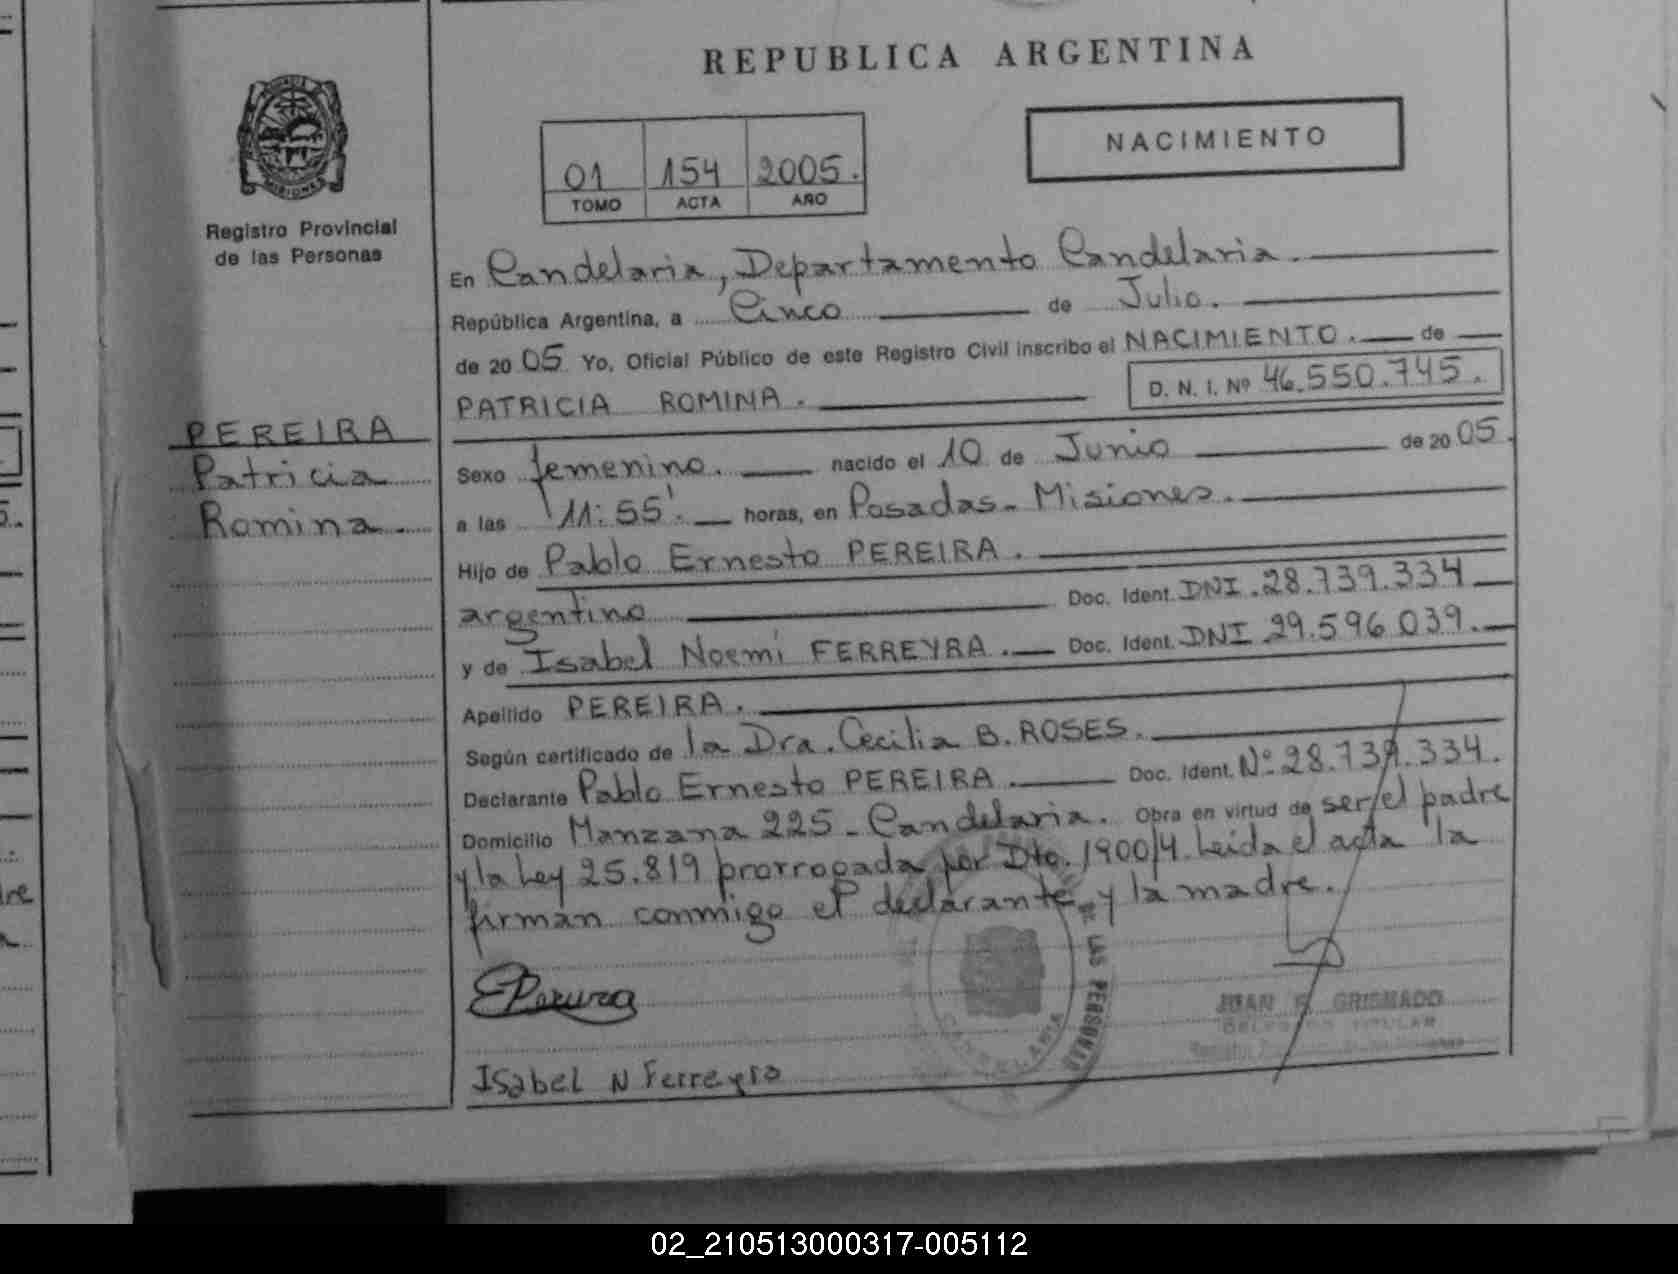 REPUBLICA ARGENTINA
NACIMIENTO
01 154 2005.
TOMO ACTA AÑO
MISIONES
Registro Provincial
de las Personas
PEREIRA
Patricia
Romina
En Candelaria, Departamento Candelaria.
República Argentina, a Cinco de Julio.
de 2005 Yo, Oficial Público de este Registro Civil inscribo el NACIMIENTO. de
PATRICIA ROMINA. D. N. I. Nº 46.550.745.
Sexo femenino. nacido el 10 de Junio de 2005.
a las 11:55'. horas, en Posadas - Misiones.
Hijo de Pablo Ernesto PEREIRA.
argentino Doc. Ident. DNI. 28.739.334
y de Isabel Noemí FERREYRA. Doc. Ident. DNI 29.596.039.
Apellido PEREIRA.
Según certificado de la Dra. Cecilia B. ROSES.
Declarante Pablo Ernesto PEREIRA. Doc. Ident. Nº 28.739.334.
Domicilio Manzana 225 - Candelaria. Obra en virtud de ser el padre
y la Ley 25.819 prorrogada por Dto. 1900/4. Leída el acta la
firman conmigo el declarante y la madre.
EPereira
JUAN GRISMADO
TITULAR
DE LAS PERSONAS
CANDELARIA
Isabel N Ferreyra
02_210513000317-005112